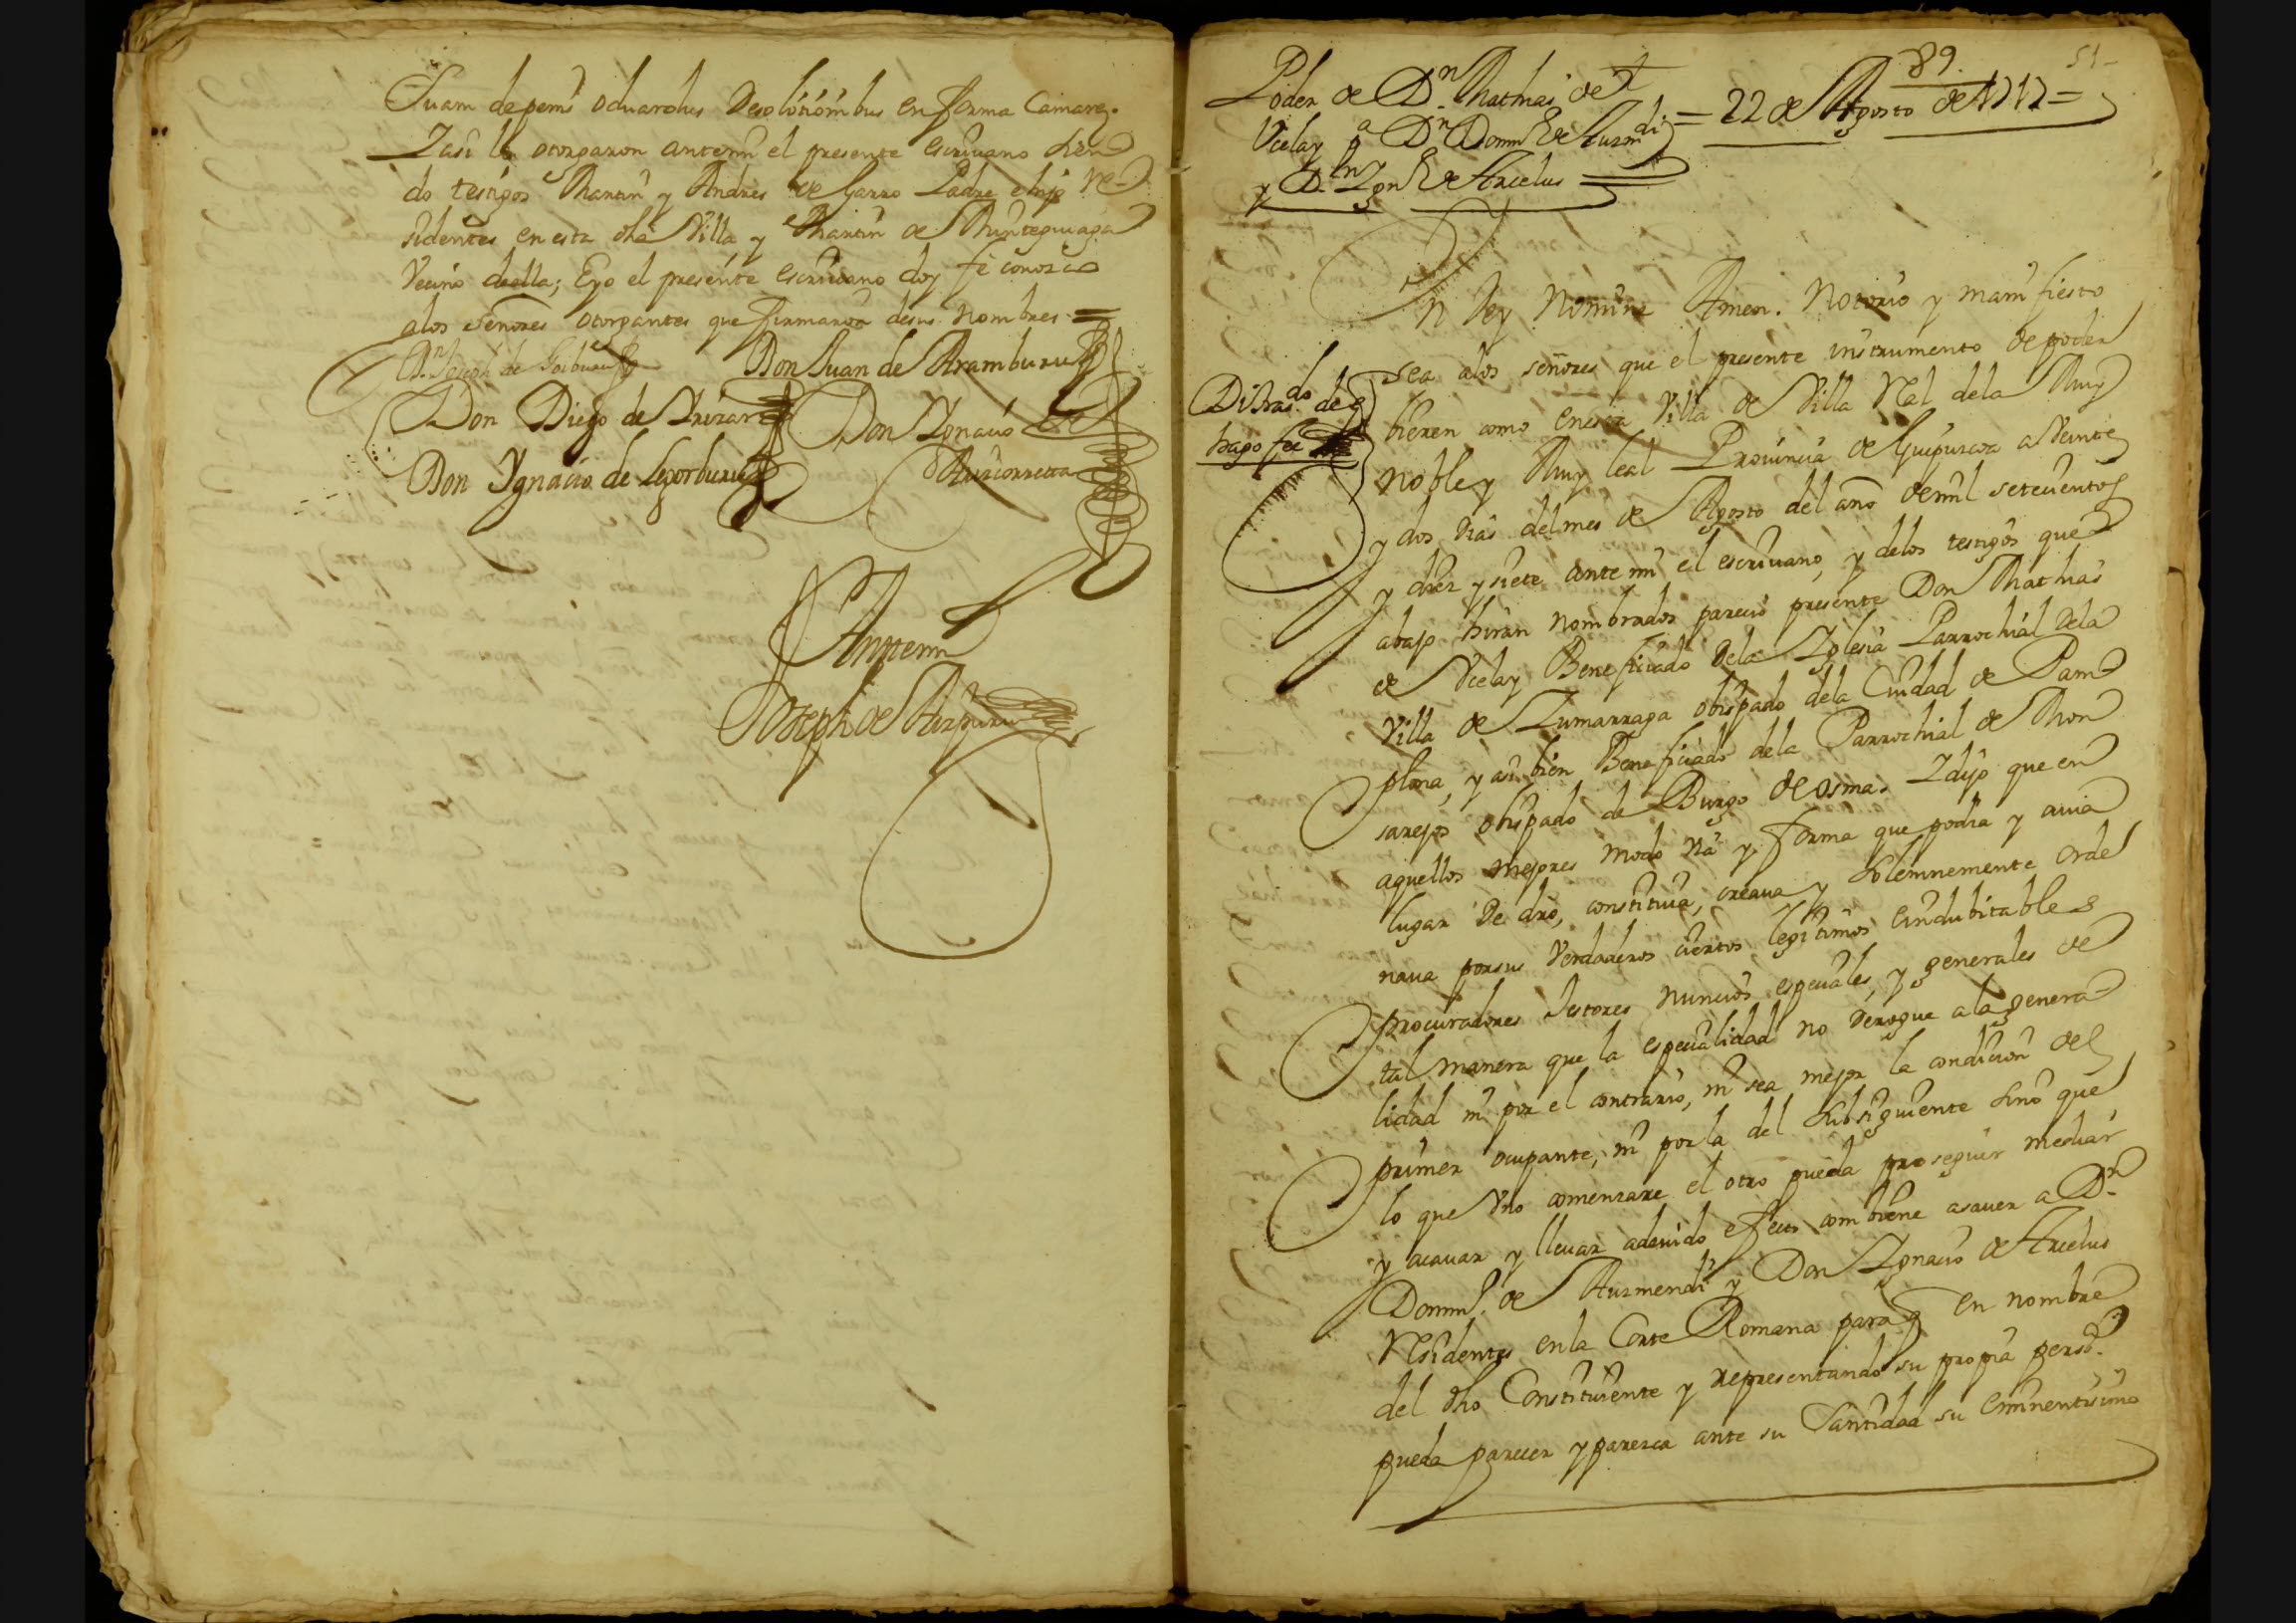 Juam de penis o duarolus Desolutiombus en forma Camare.
Y asi lo otorgaron antemi el presente escriuano sien
do testigos Martin y Andres de Garro Padre e hijo re-
sidentes en esta dha Villa, y Martin de Minteguiaga
Vecino de ella; Eyo el presente escriuano doy fe conozco
alos Señores otorgantes que firmaron desus nombres =
Dn. Joseph de Goiburu Don Juan de Aramburu
Don Diego de Yrizar Don Ygnacio de
Don Ygnacio de Legorburu Aizcorreta
Antemi
Joseph de Aizpuru
89. 51-
Poder de Dn. Mathias de
Vcelay a Dn Domin de Auzmdi = 22 de Agosto de 1717 =
y Dn Ygn de Arcelus
In Dey Nomine Amen. Notorio y manifiesto
sea alos señores que el presente instrumento de poder
Disrasdo. de
hago fee
bieren como en esta Villa de Villa Real dela Muy
Noble y Muy leal Prouincia de Guipuzcoa a Veinte
y dos dias del mes de Agosto del año de mil setecientos
y diez y siete ante mi el escriuano, y delos testigos que
abajo hiran nombrados parecio presente Don Mathias
de Vcelay Beneficiado dela Yglesia Parrochial dela
Villa de Zumarraga obispado dela Ciudad de Pam
plona, y asi bien Beneficiado dela Parrochial de Mon
sarejos obispado de Burgo de osma. Y dijo que en
aquellos mejores modo via y forma que podia y auia
lugar de dro, constituia, creaua y solemnemente orde
naua por sus Verdaderos ciertos legitimos e indubitables
procuradores Jestores nuncios especiales, y generales de
tal manera que la especialidad no derogue ala genera-
lidad ni por el contrario, ni sea mejor la condicion del
primer ocupante, ni por la del subsiguiente sino que
lo que Vno comenzare el otro pueda proseguir mediar
y acauar y lleuar adeuido efecto combiene asauer a Dn.
Domin. de Auzmendi y Don Ygnacio de Arcelus
Residentes en la Corte Romana para q en nombre
del dho Constituiente y representando su propia perso.
pueda parecer y parezca ante su Santidad su eminentisimo